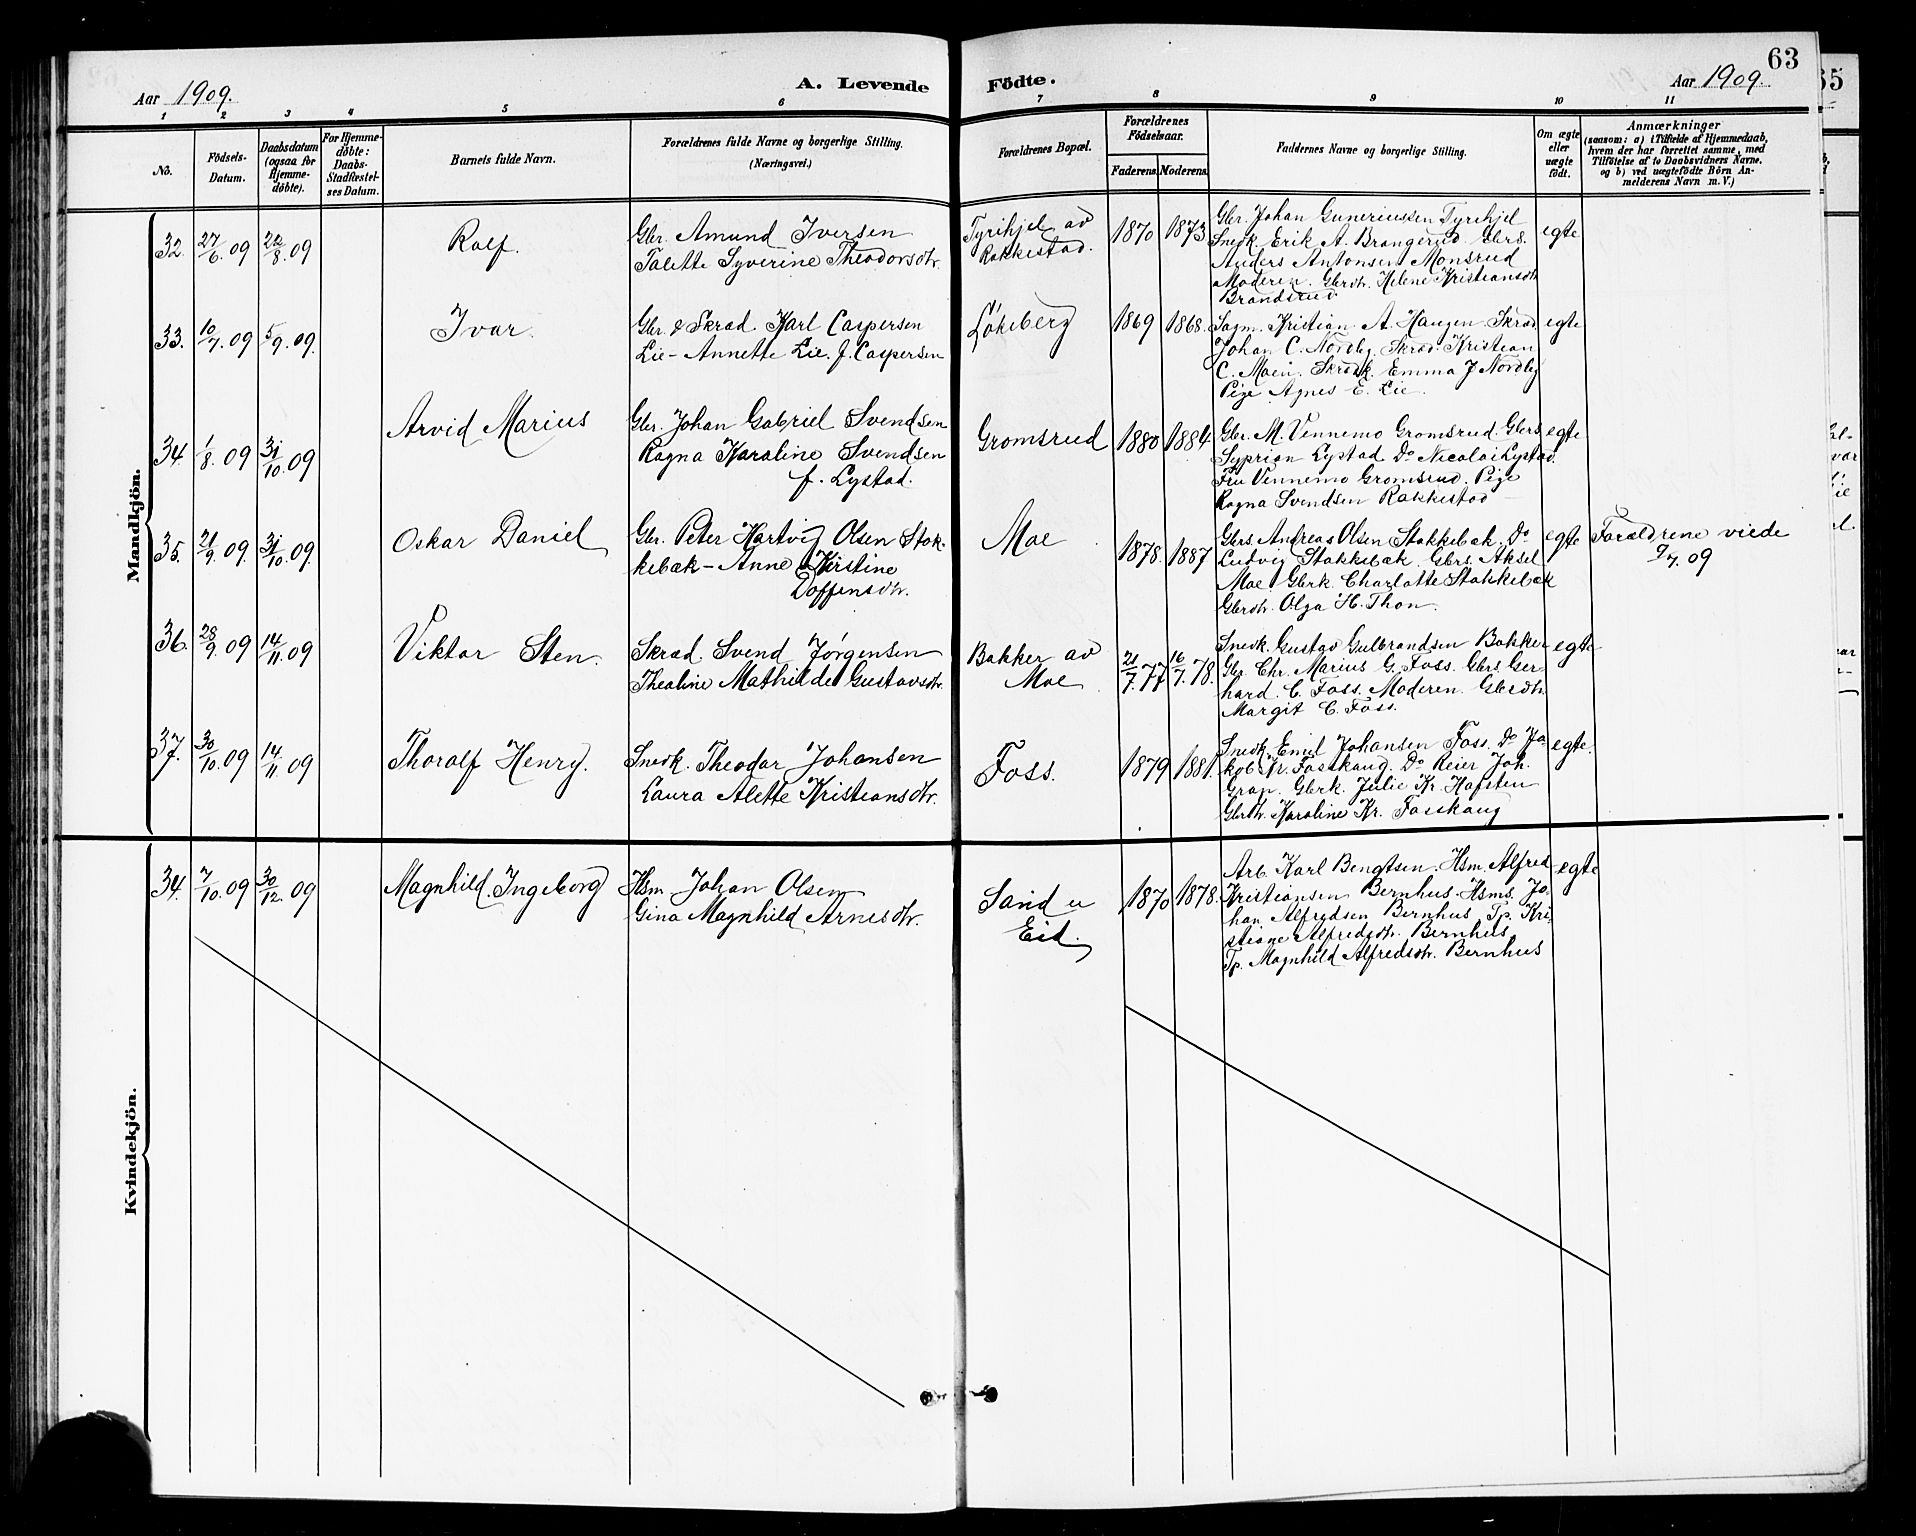 63
65
Aar 1909.
A. Levende Födte.
Aar 1909.
1 2 3 4 5 6 7 8 9 10 11
No.
Födsels-
Datum.
Daabsdatum
(ogsaa for
Hjemme-
döbte).
For Hjemme-
döbte:
Daabs-
Stadfæstel-
ses Datum.
Barnets fulde Navn.
Forældrenes fulde Navne og borgerlige Stilling.
(Næringsvei.)
Forældrenes Bopæl.
Forældrenes
Födselsaar.
Faderens. Moderens.
Faddernes Navne og borgerlige Stilling.
Om ægte
eller
uægte
født.
Anmærkninger
(saasom: a) i Tilfælde af Hjemmedaab,
hvem der har forrettet samme, med
Tilföielse af to Daabsvidners Navne,
og b) ved uægtefödte Börn An-
melderens Navn m. V.)
Mandkjön.
32. 27/6 09 22/8 09
Rolf.
Gbr. Amund Iversen
Talette Syverine Theodorsdtr.
Tyrihjel av
Rakkestad.
1870 1873
Gbr. Johan Guneriussen Tyrihjel
Snedk. Erik A. Brangerud. Gbrs.
Anders Antonsen Monsrud
Moderen. Gbrdtr. Helene Kristiansdtr
Brandsrud
egte
33. 10/7 09 5/9 09.
Ivar.
Gbr. & Skræd. Karl Caspersen
Lie - Annette Lie. f. Caspersen
Løkeberg
1869 1868.
Sagm. Kristian A. Haugen Skræd
Johan C. Nordby. Skræd. Kristian
C. Moen. Skrædk. Emma J Nordby
Pige Agnes E. Lie.
egte
34. 1/8. 09 31/10. 09
Arvid Marius
Gbr. Johan Gabriel Svendsen
Ragna Karoline Svendsen
f. Lystad.
Gromsrud
1880 1884
Gbr. M. Vennemo Gromsrud. Gbrs
Syprian Lystad Do Nicolai Lystad.
Fru Vennemo Gromsrud. Pige
Ragna Svendsen Rakkestad
egte
35. 21/9. 09. 31/10. 09.
Oskar Daniel
Gbr. Peter Hartvig Olsen Stok-
kebæk - Anne Kirstine
Doffensdtr.
Moe
1878. 1887
Gbrs. Andreas Olsen Stokkebæk. Do
Ludvig Stokkebæk Gbrs. Aksel
Moe Gbrk. Charlotte Stokkebæk
Gbrdtr. Olga H. Thon.
egte
Forældrene viede
9/7. 09
36. 28/9. 09 14/11. 09
Viktor Sten.
Skræd. Svend Jørgensen
Thealine Mathilde Gustavsdtr.
Bakker av
Moe
21/7. 77 16/7. 78.
Snedk. Gustav Gulbrandsen Bakker
Gbr. Chr. Marius G. Foss. Gbrs. Ger-
hard. C. Foss. Moderen. Gbrdtr.
Margit C. Foss.
egte
37. 30/10. 09 14/11 09
Thoralf Henry.
Snedk. Theodor Johansen
Laura Alette Kristiansdtr.
Foss.
1879 1881.
Snedk. Emil Johansen Foss. Do Ja-
kob Kr. Fosskaug. Do Reier Joh.
Grav. Gbrk. Julie Kr. Hafsten
Gbrdtr. Karoline Kr. Fosskaug
egte.
Kvindekjön.
34. 7/10. 09 30/12. 09
Magnhild Ingeborg
Hsm. Johan Olsen
Gina Magnhild Arnesdtr.
Sand u
Eid.
1870 1878.
Arb. Karl Bengtsen. Hsm. Alfred
Kristiansen Bernhus. Hsms. Jo-
han Alfredsen Bernhus Tp. Kri-
stiane Alfredsdtr. Bernhus
Tp. Magnhild Alfredsdtr. Bernhus
egte